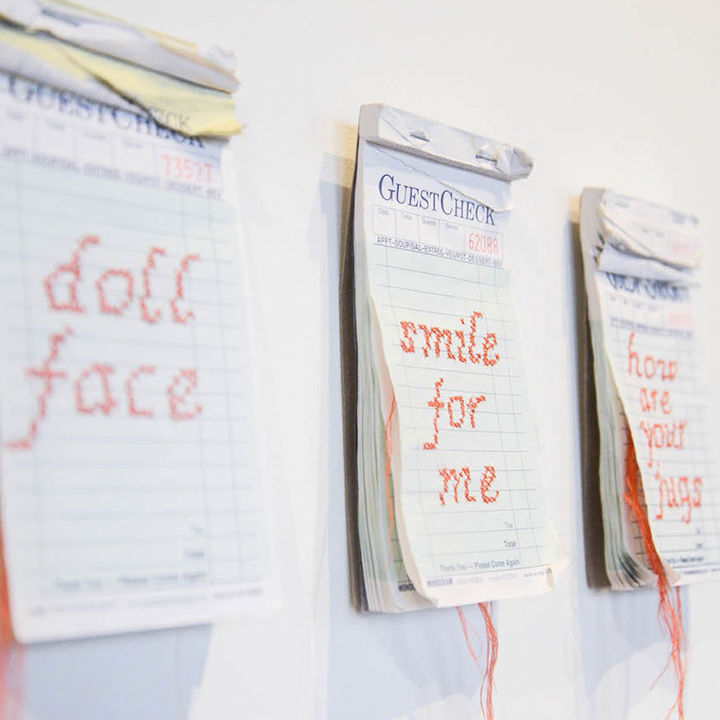 GUESTCHECK
73527
APPT-SOUP/SAL-ENTREE-VEG/POT-DESSERT-BEV
doll
face
Tax
Total
Thank You — Please Come Again
GUESTCHECK
Date Table Guests Server
62088
APPT-SOUP/SAL-ENTREE-VEG/POT-DESSERT-BEV
smile
for
me
Tax
Total
Thank You — Please Come Again
GUESTCHECK
how
are
your
jugs